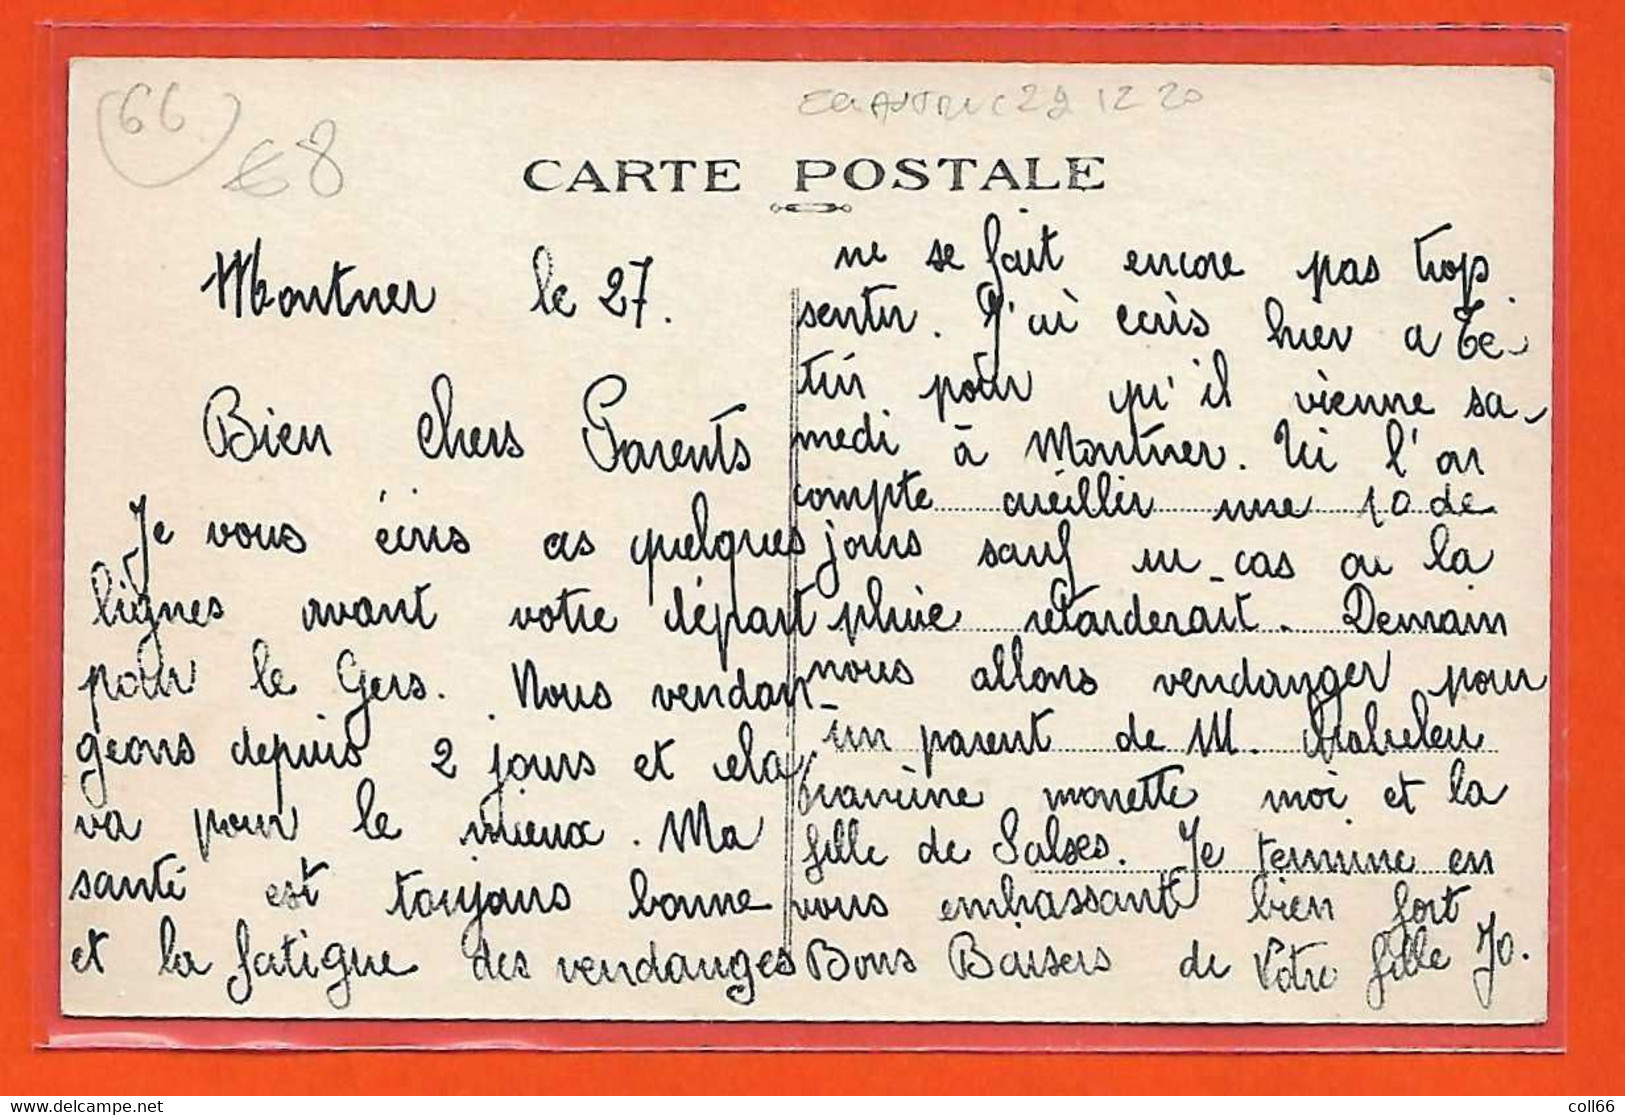 (66)
€8
29 12 20
CARTE POSTALE
Montner le 27.
Bien chers Parents
Je vous écris ces quelques
lignes avant votre départ
pour le Gers. Nous vendan-
geons depuis 2 jours et cela
va pour le mieux. Ma
santé est toujours bonne
et la fatigue des vendanges
ne se fait encore pas trop
sentir. J'ai écris hier a Té-
tin pour qu'il vienne sa-
medi à Montner. Ici l'on
compte cueillir une 10 de
jours sauf un cas ou la
pluie retarderait. Demain
nous allons vendanger pour
un parent de M.
francine monette moi et la
fille de Salses. Je termine en
vous embassant bien fort
Bons Baisers de Votre fille Jo.
coll66